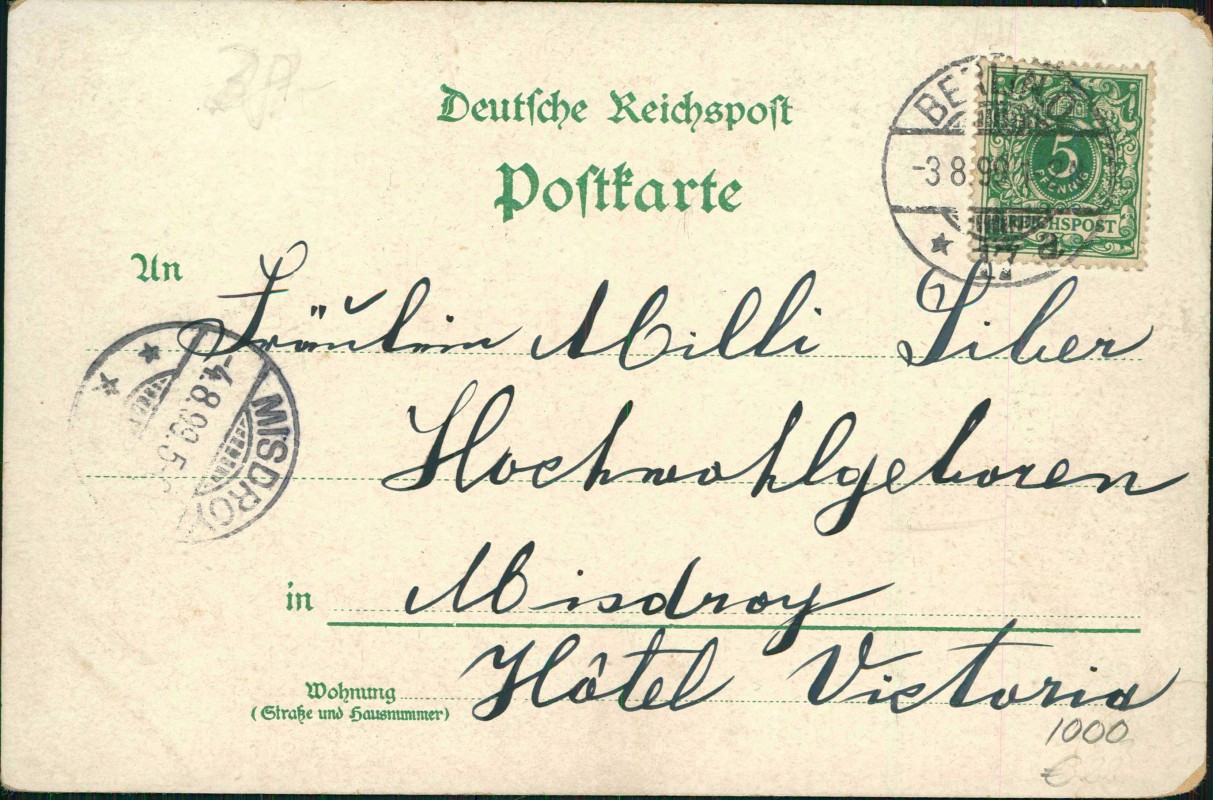 Deutsche Reichspost
Postkarte
BERLIN
-3 8.99
5
PFENNIG
REICHSPOST
An
Fräulein Milli Siber
MISDROY
-4.8.99.5-
Hochwohlgeboren
in Misdroy
Hôtel Victoria
Wohnung
(Straße und Hausnummer)
1000